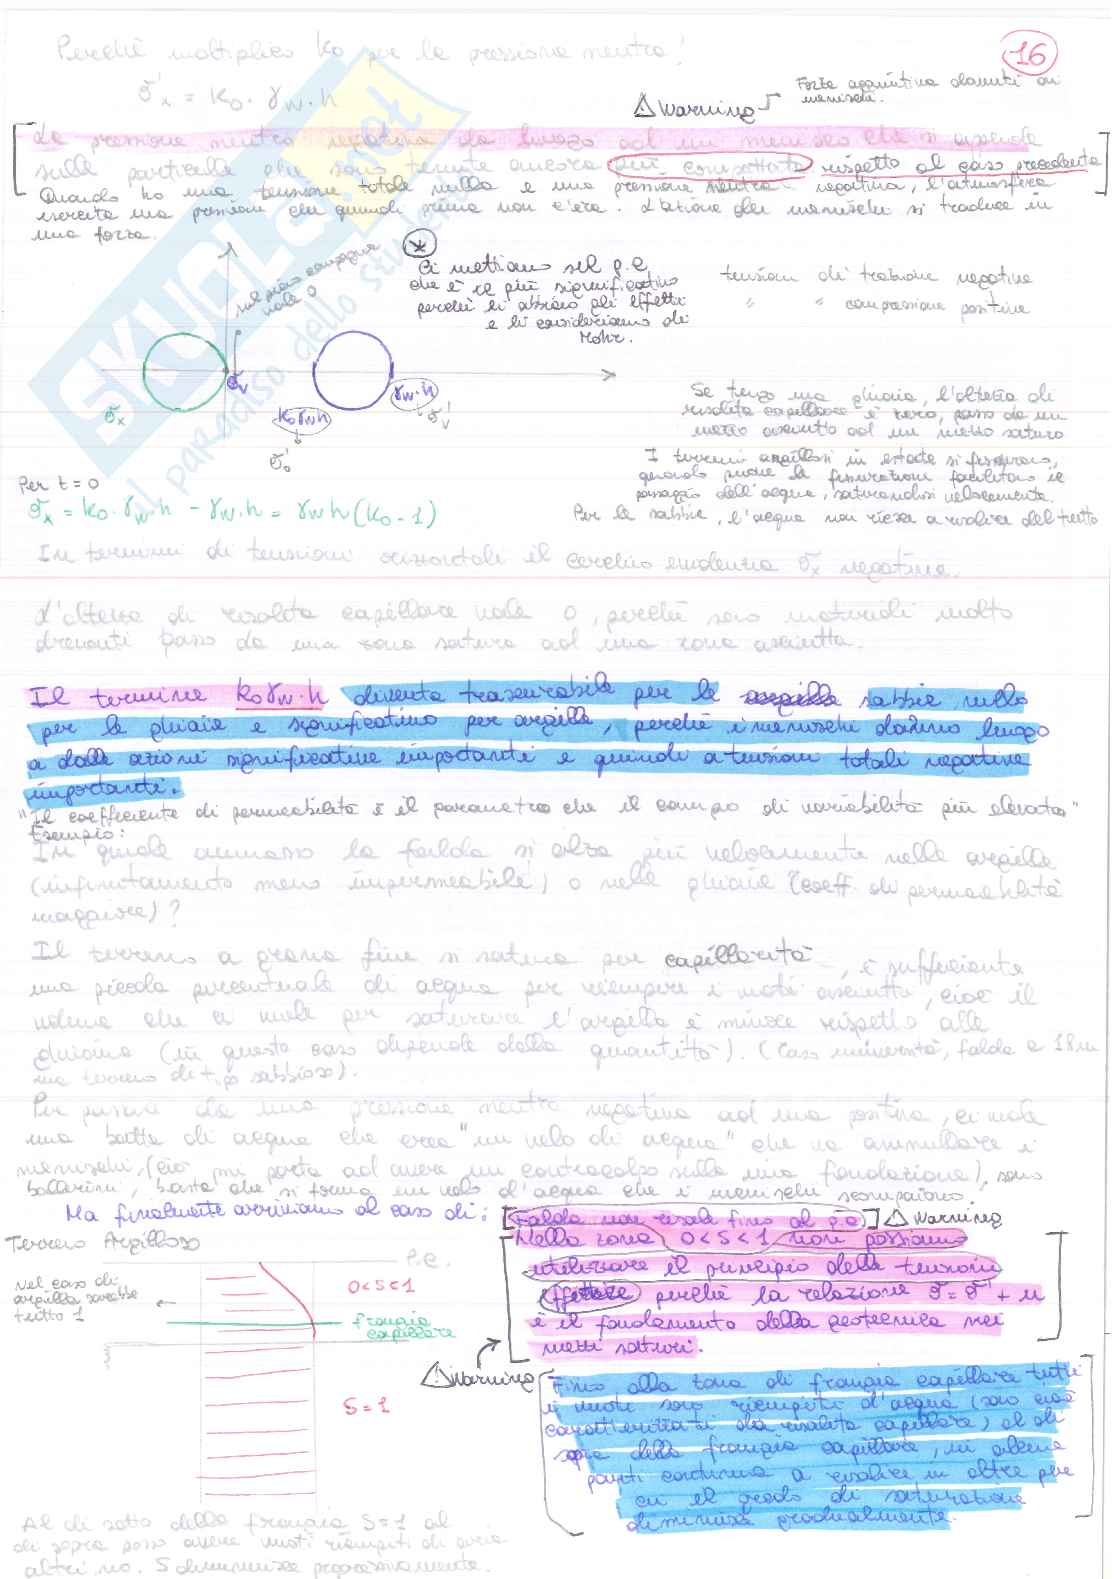 Perchè moltiplico k₀ per la pressione neutra!
16
σ'ₓ = k₀ · γw · h
⚠ Warning → Forza aggiuntiva dovuta ai menischi.
La pressione neutra negativa dà luogo ad un menisco che si appende
sulle particelle che sono tenute ancora più compattate rispetto al caso precedente
Quando ho una tensione totale nulla e una pressione neutra negativa, l'atmosfera
esercita una pressione che quindi prima non c'era. L'azione dei menischi si traduce in
una forza.
nel piano campagna
vale 0
*
Ci mettiamo sul p.c
che è il più significativo
perchè lì abbiamo gli effetti
e li consideriamo di
Mohr.
tensioni di trazione negative
" " compressione positive
σₓ
σᵥ
k₀γw h
γw·h
σ'ᵥ
σ'₀
Se tengo una ghiaia, l'altezza di
risalita capillare è zero, passo da un
mezzo asciutto ad un mezzo saturo
I terreni argillosi in estate si fessurano,
quando piove le fessurazioni facilitano il
passaggio dell'acqua, saturandosi velocemente.
Per le sabbie, l'acqua non riesce a risalire del tutto
Per t = 0
σₓ = k₀ · γw · h - γw · h = γw h (k₀ - 1)
In termini di tensioni orizzontali il cerchio evidenzia σₓ negativa.
L'altezza di risalita capillare vale 0, perchè sono materiali molto
drenanti passo da una zona satura ad una zona asciutta.
Il termine k₀γw·h diventa trascurabile per le argille sabbie, nullo
per le ghiaie e significativo per argille, perchè i menischi danno luogo
a dalle azioni significative importanti e quindi a tensioni totali negative
importanti.
"Il coefficiente di permeabilità è il parametro che il campo di variabilità più elevato"
Esempio:
In quale ammasso la falda si alza più velocemente nelle argille
(infinitamente meno impermeabile) o nelle ghiaie (coeff. di permeabilità
maggiore)?
Il terreno a grana fine si satura per capillarità, è sufficiente
una piccola percentuale di acqua per riempire i vuoti asciutti, cioè il
volume che ci vuole per saturare l'argilla è minore rispetto alle
ghiaie (in questo caso dipende dalla quantità). (Caso università, falda a 18m
ma terreno di tipo sabbioso).
Per passare da una pressione neutra negativa ad una positiva, ci vuole
una botta di acqua che crea "un velo di acqua" che va annullare i
menischi, (ciò mi porta ad avere un contraccolpo sulla mia fondazione), sono
ballerini, basta che si forma un velo d'acqua che i menischi scompaiono.
Ma finalmente arriviamo al caso di: [Falda non risale fino al p.c] ⚠ Warning
Terreno Argilloso
P.C.
Nel caso di
argilla sarebbe
tutto 1
0<S<1
frangia
capillare
S = 1
Nella zona 0<S<1 non possiamo
utilizzare il principio delle tensioni
efficaci perchè la relazione σ = σ' + u
è il fondamento della geotecnica nei
mezzi saturi.
⚠ Warning
Fino alla zona di frangia capillare tutti
i vuoti sono riempiti d'acqua (sono cioè
caratterizzati da risalita capillare) al di
sopra della frangia capillare, in alcuni
punti continua a risalire in altre per
cui il grado di saturazione
diminuisce gradualmente.
Al di sotto della frangia S=1 al
di sopra posso avere vuoti riempiti di aria
altri no. S diminuisce progressivamente.